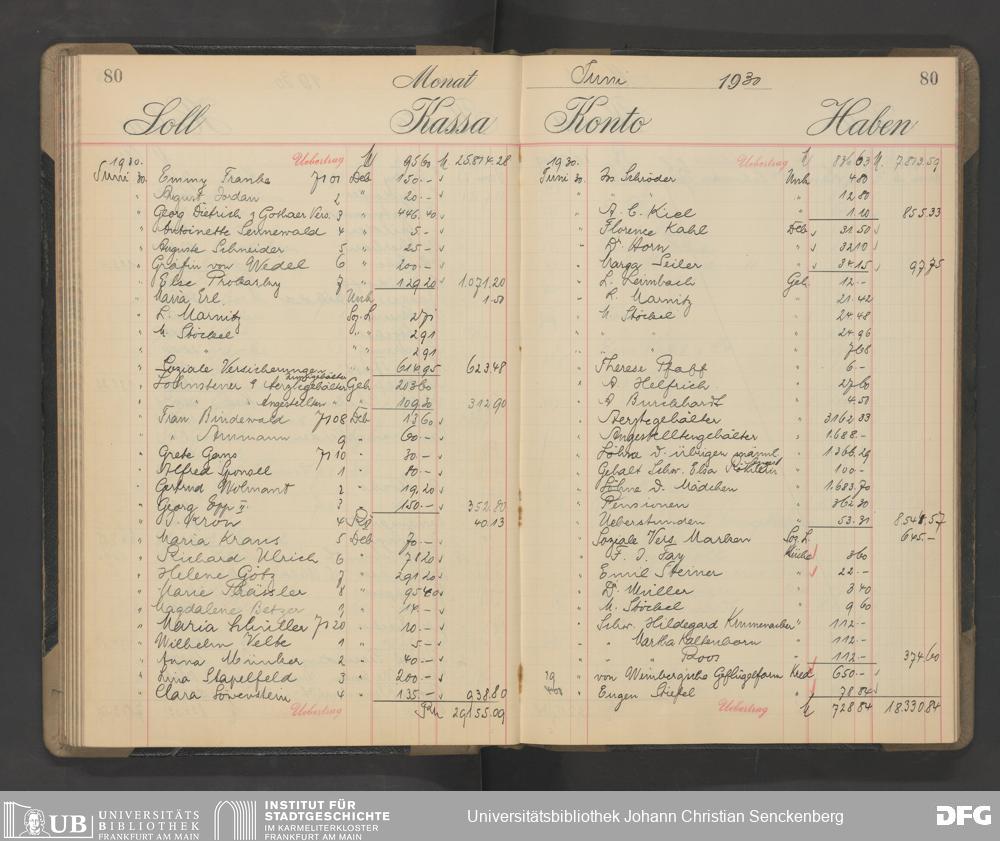 80 Monat
Soll Kassa
1930. Uebertrag 9560 25.814.28
Juni 30. Emmy Franke 7101 Deb 150.--
" August Jordan 2 " 20.--
" Georg Dietrich z Gothaer Vers. 3 " 446.40
" Antoinette Sennewald 4 " 5.-
" Auguste Schneider 5 " 25.-
" Gräfin von Wedel 6 " 200.-
" Else 7 " 129.20 1.071.20
" Maria Erl Unk 1.50
" L. Marnitz Soz. L 271
" M. Stöckel " " 291
" " " " 291
" Soziale Versicherungen " " 614.95 623.48
" Geb. 203.60
" " Angestellten " " 109.30 312.90
" Frau Bindewald 7108 Deb 13.60
" " Ammann 9 " 60.-
" Grete Gans 7110 " 30.-
" Alfred 1 " 80.-
" Gertrud Wohnant 2 " 19.20
" Georg Epp II 3 " 150.- 352.80
" J. Kron 4 40.13
" Maria Kraus 5 Deb 70.-
" Richard Ulrich 6 " 78.20
" Helene Götz 7 " 291.20
" Marie 8 " 95.40
" Magdalene Betzer 9 " 14.-
" Maria Schüller 7120 " 10.-
" Wilhelm Velte 1 " 5.-
" Anna Münker 2 " 40.-
" Lina Stapelfeld 3 " 200.-
" Clara Löwenstein 4 " 135.- 938.80
Uebertrag 29.155.09
Juni 1930 80
Konto Haben
1930. Uebertrag 836.63 7.813.59
Juni 30. Schröder Unk 4.80
" " " 12.80
" A. C. Kiel " 1.20 855.33
" Florence Kahl Deb 31.50
" Dr. Horn " 32.10
" Marga Seiler " 34.15 97.75
" L. Leimbach Geh. 12.-
" L. Marnitz " 21.42
" M. Stöckel " 24.48
" " " 24.96
" " " 7.68
" Therese Pfaff " 6.-
" A. Helfrich " 27.60
" A Burckhardt " 4.50
" Aerztegehälter " 3162.33
" Angestelltengehälter " 1.688.-
" Löhne d. übrigen Personal " 1.266.29
" Gehalt Schw. Elsa " 100.-
" Löhne d. Mädchen " 1.683.70
" Pensionen " 362.30
" Ueberstunden " 53.31 8.544.57
" Soziale Vers. Marken Soz. L. 645.-
" F. J. Fay Küche 3.60
" Emil Steiner " 22.-
" Dr. Müller " 3.40
" M. Stöckel " 9.60
" Schw. Hildegard " 112.-
" " Martha Kaltenborn " 112.-
" " Roos " 112.- 374.60
von Weinbergische Geflügelfarm Kred 650.-
Eugen Stiefel " 78.84
Uebertrag 728.84 18.330.84
UB UNIVERSITÄTS
BIBLIOTHEK
FRANKFURT AM MAIN
INSTITUT FÜR
STADTGESCHICHTE
IM KARMELITERKLOSTER
FRANKFURT AM MAIN
Universitätsbibliothek Johann Christian Senckenberg
DFG